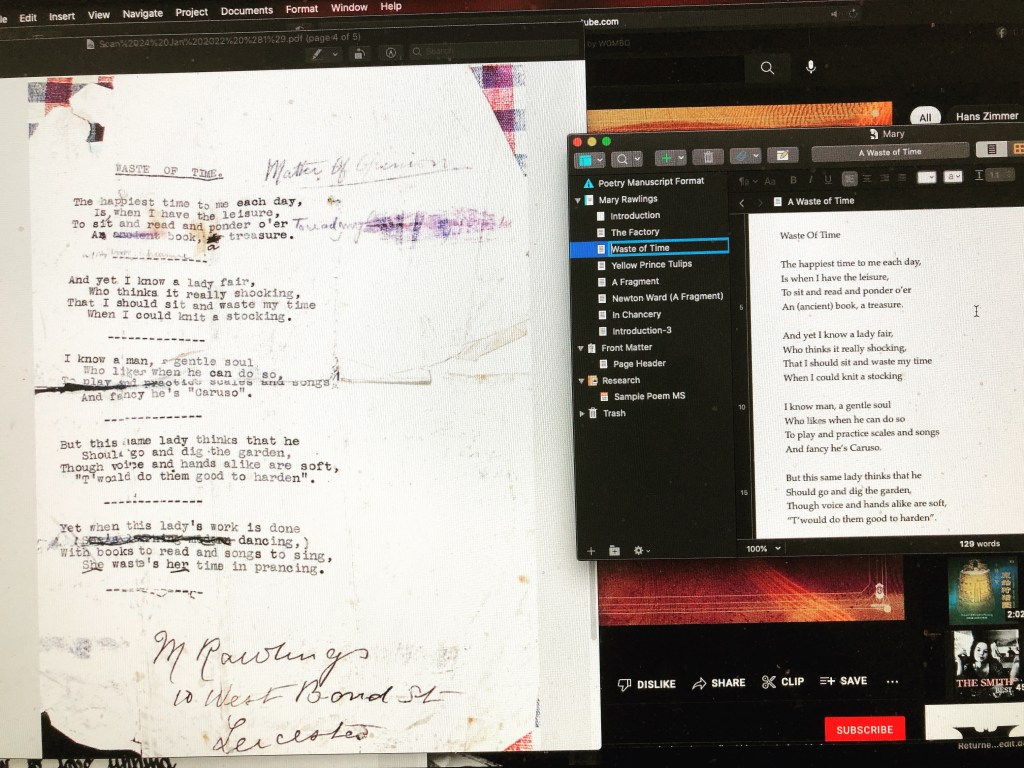 le Edit Insert View Navigate Project Documents Format Window Help
Scan%2024%20Jan%202022%20%281%29.pdf (page 4 of 5)
Search
WASTE OF TIME.
Matter Of Opinion
The happiest time to me each day,
Is when I have the leisure,
To sit and read and ponder o'er
An ancient book, a treasure.
And yet I know a lady fair,
Who thinks it really shocking,
That I should sit and waste my time
When I could knit a stocking.
I know a man, a gentle soul
Who likes when he can do so,
To play and practice scales and songs
And fancy he's "Caruso".
But this same lady thinks that he
Should go and dig the garden,
Though voice and hands alike are soft,
"T'would do them good to harden".
Yet when this lady's work is done
dancing,)
With books to read and songs to sing,
She waste's her time in prancing.
M Rawlings
10 West Bond St
Leicester
tube.com
by WGMBQ
All
Hans Zimmer
Mary
A Waste of Time
Poetry Manuscript Format
Mary Rawlings
Introduction
The Factory
Waste of Time
Yellow Prince Tulips
A Fragment
Newton Ward (A Fragment)
In Chancery
Introduction-3
Front Matter
Page Header
Research
Sample Poem MS
Trash
Aa B I U a 1.1
A Waste of Time
Waste Of Time
The happiest time to me each day,
Is when I have the leisure,
To sit and read and ponder o'er
5
An (ancient) book, a treasure.
And yet I know a lady fair,
Who thinks it really shocking,
That I should sit and waste my time
When I could knit a stocking
10
I know man, a gentle soul
Who likes when he can do so
To play and practice scales and songs
And fancy he's Caruso.
But this same lady thinks that he
15
Should go and dig the garden,
Though voice and hands alike are soft,
"T'would do them good to harden".
100%
129 words
DISLIKE
SHARE
CLIP
SAVE
SUBSCRIBE
2:02
THE SMITH
BEST
Returne...edit.do